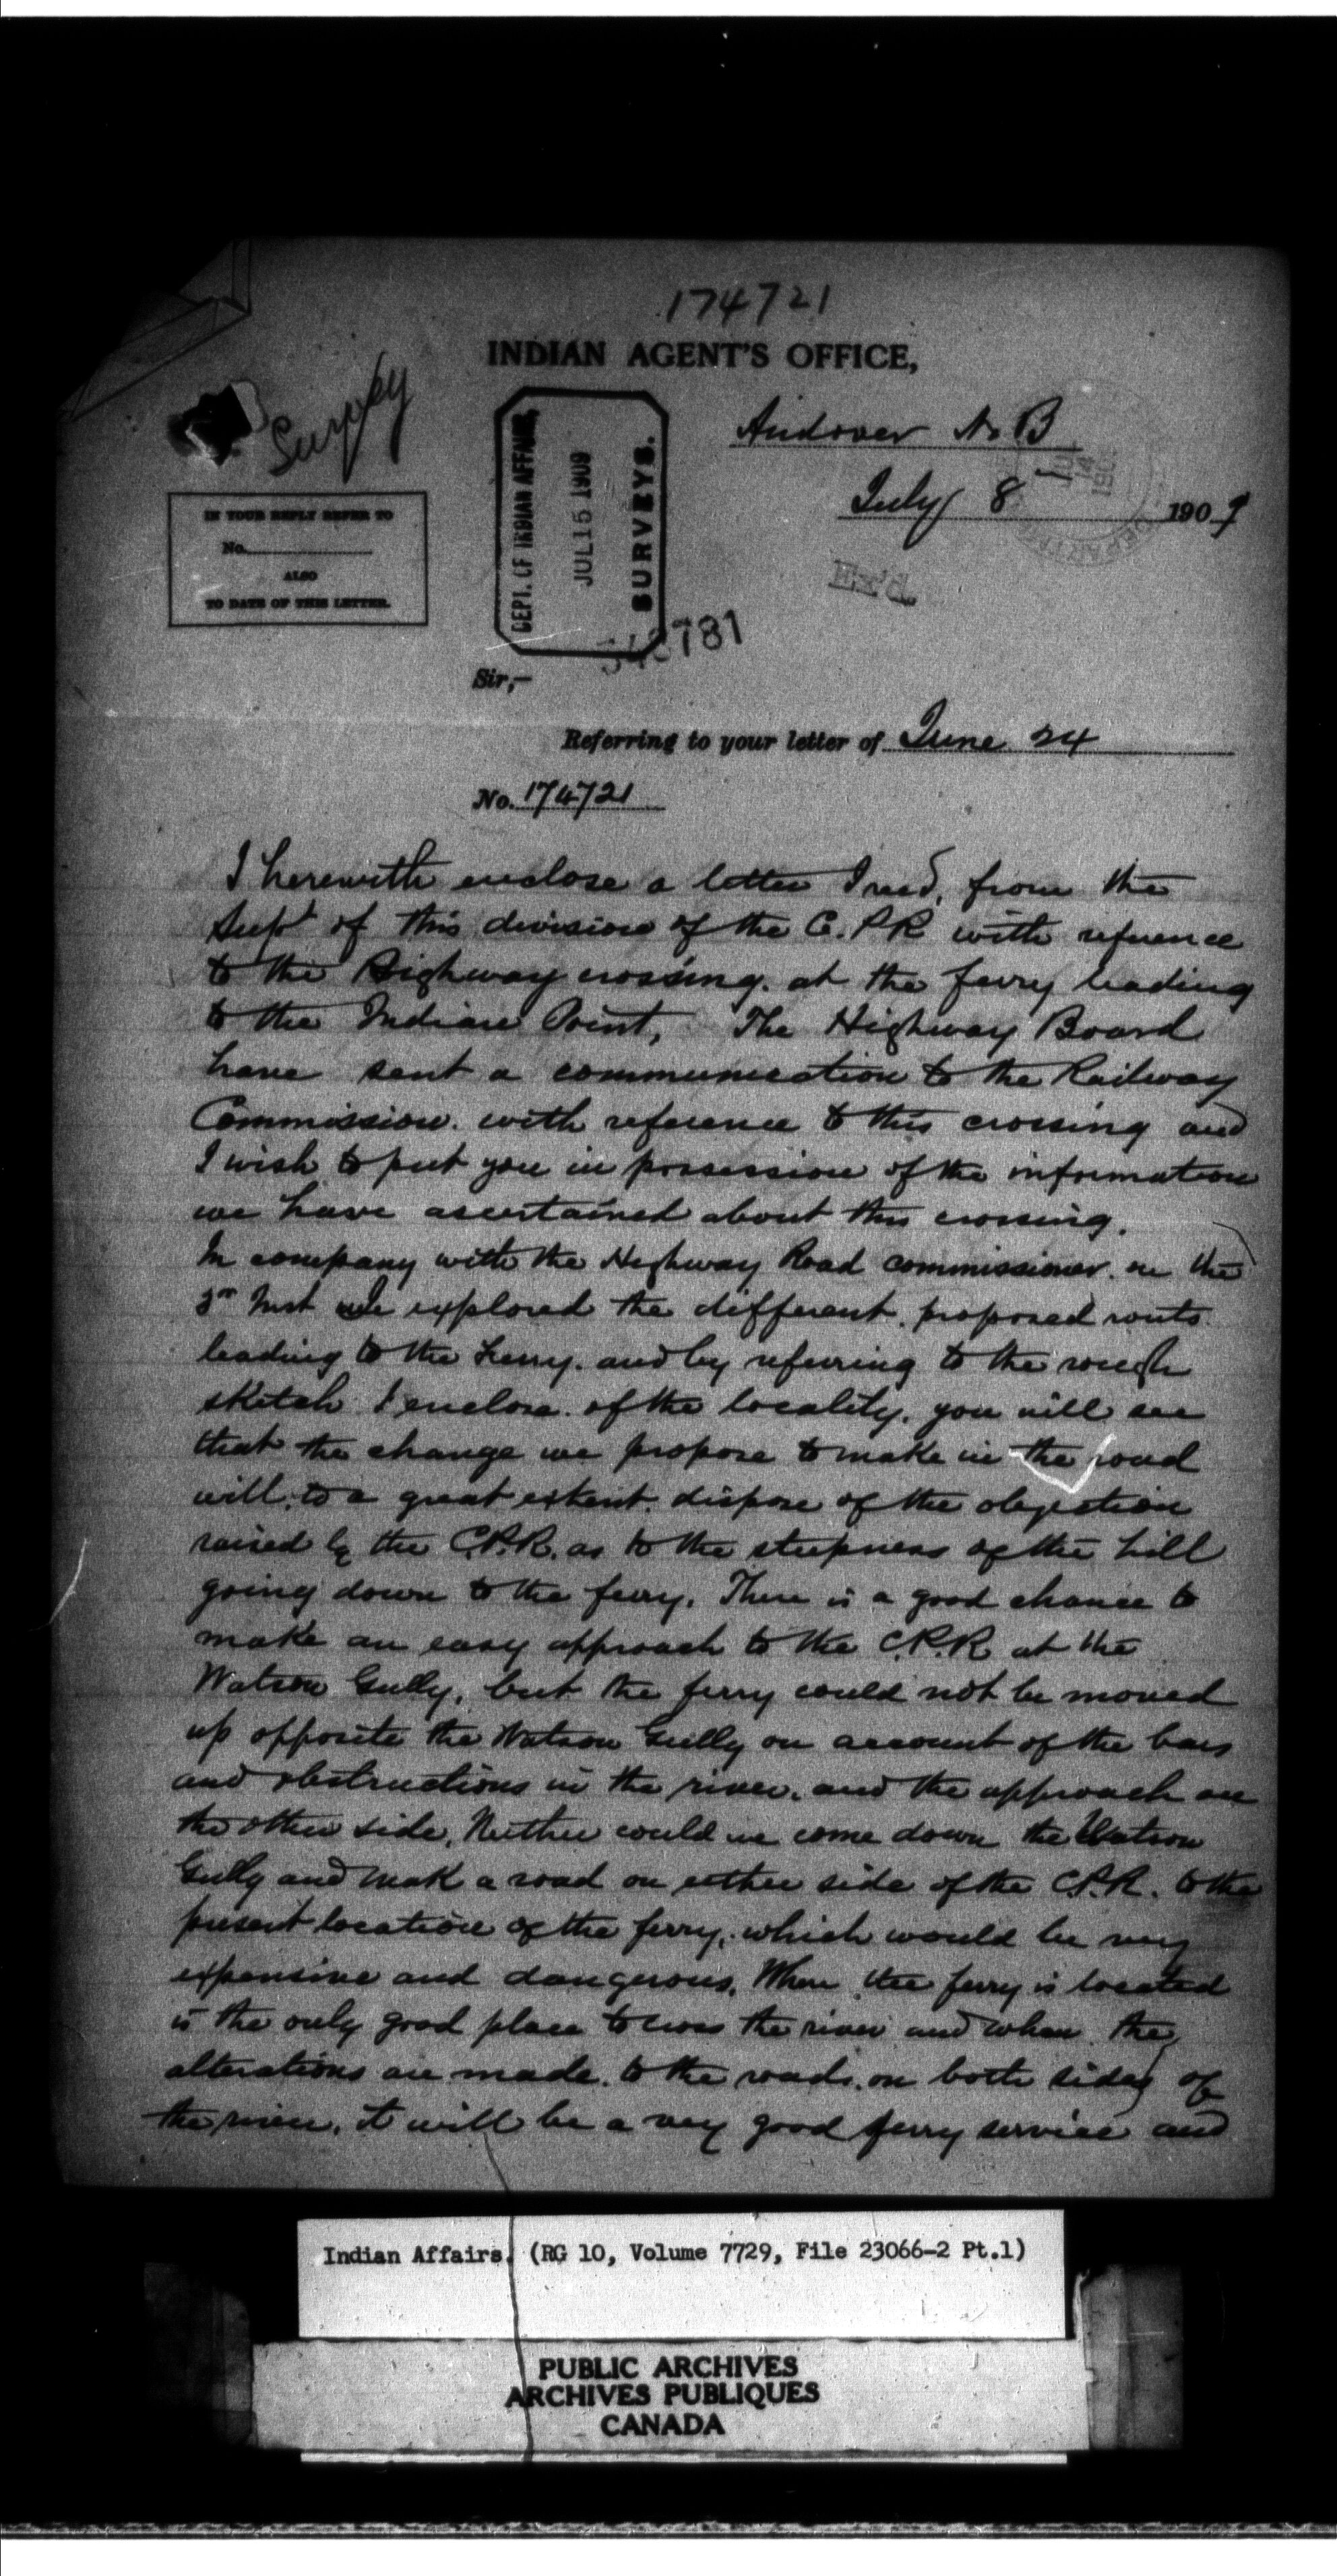 174721
INDIAN AGENT'S OFFICE,
Survey
Andover N. B
July 8 1909
IN YOUR REPLY REFER TO
No.
ALSO
TO DATE OF THIS LETTER.
DEPT. OF INDIAN AFFAIRS,
JUL 15 1909
SURVEYS.
JUL 14 190
DEPARTM
Ex'd.
781
Sir,—
Referring to your letter of June 24
No. 174721
I herewith enclose a letter I recd, from the
Supt of this division of the C. P R with reference
to the Highway crossing. at the ferry leading
to the Indian Point, The Highway Board
have sent a communication to the Railway
Commission. with reference to this crossing and
I wish to put you in possession of the information
we have ascertained about this crossing.
In company with the Highway Road commissioner. on the
3rd Inst we explored the different. proposed routs
leading to the Ferry. and by referring to the rough
sketch I enclose. of the locality, you will see
that the change we propose to make in the road
will, to a great extent, dispose of the objection
raised by the C.P.R. as to the steepness of the hill
going down to the ferry. There is a good chance to
make an easy approach to the C.P.R at the
Watson Gully, but the ferry could not be moved
up opposite the Watson Gully on account of the bars
and obstructions in the river. and the approach on
the other side, Neither could we come down the Watson
Gully and mak a road on either side of the C.P.R. to the
present location of the ferry, which would be very
expensive and dangerous. Where the ferry is located
is the only good place to cross the river and when the
alterations are made. to the roads. on both sides of
the river. it will be a very good ferry service and
Indian Affairs. (RG 10, Volume 7729, File 23066-2 Pt.1)
PUBLIC ARCHIVES
ARCHIVES PUBLIQUES
CANADA